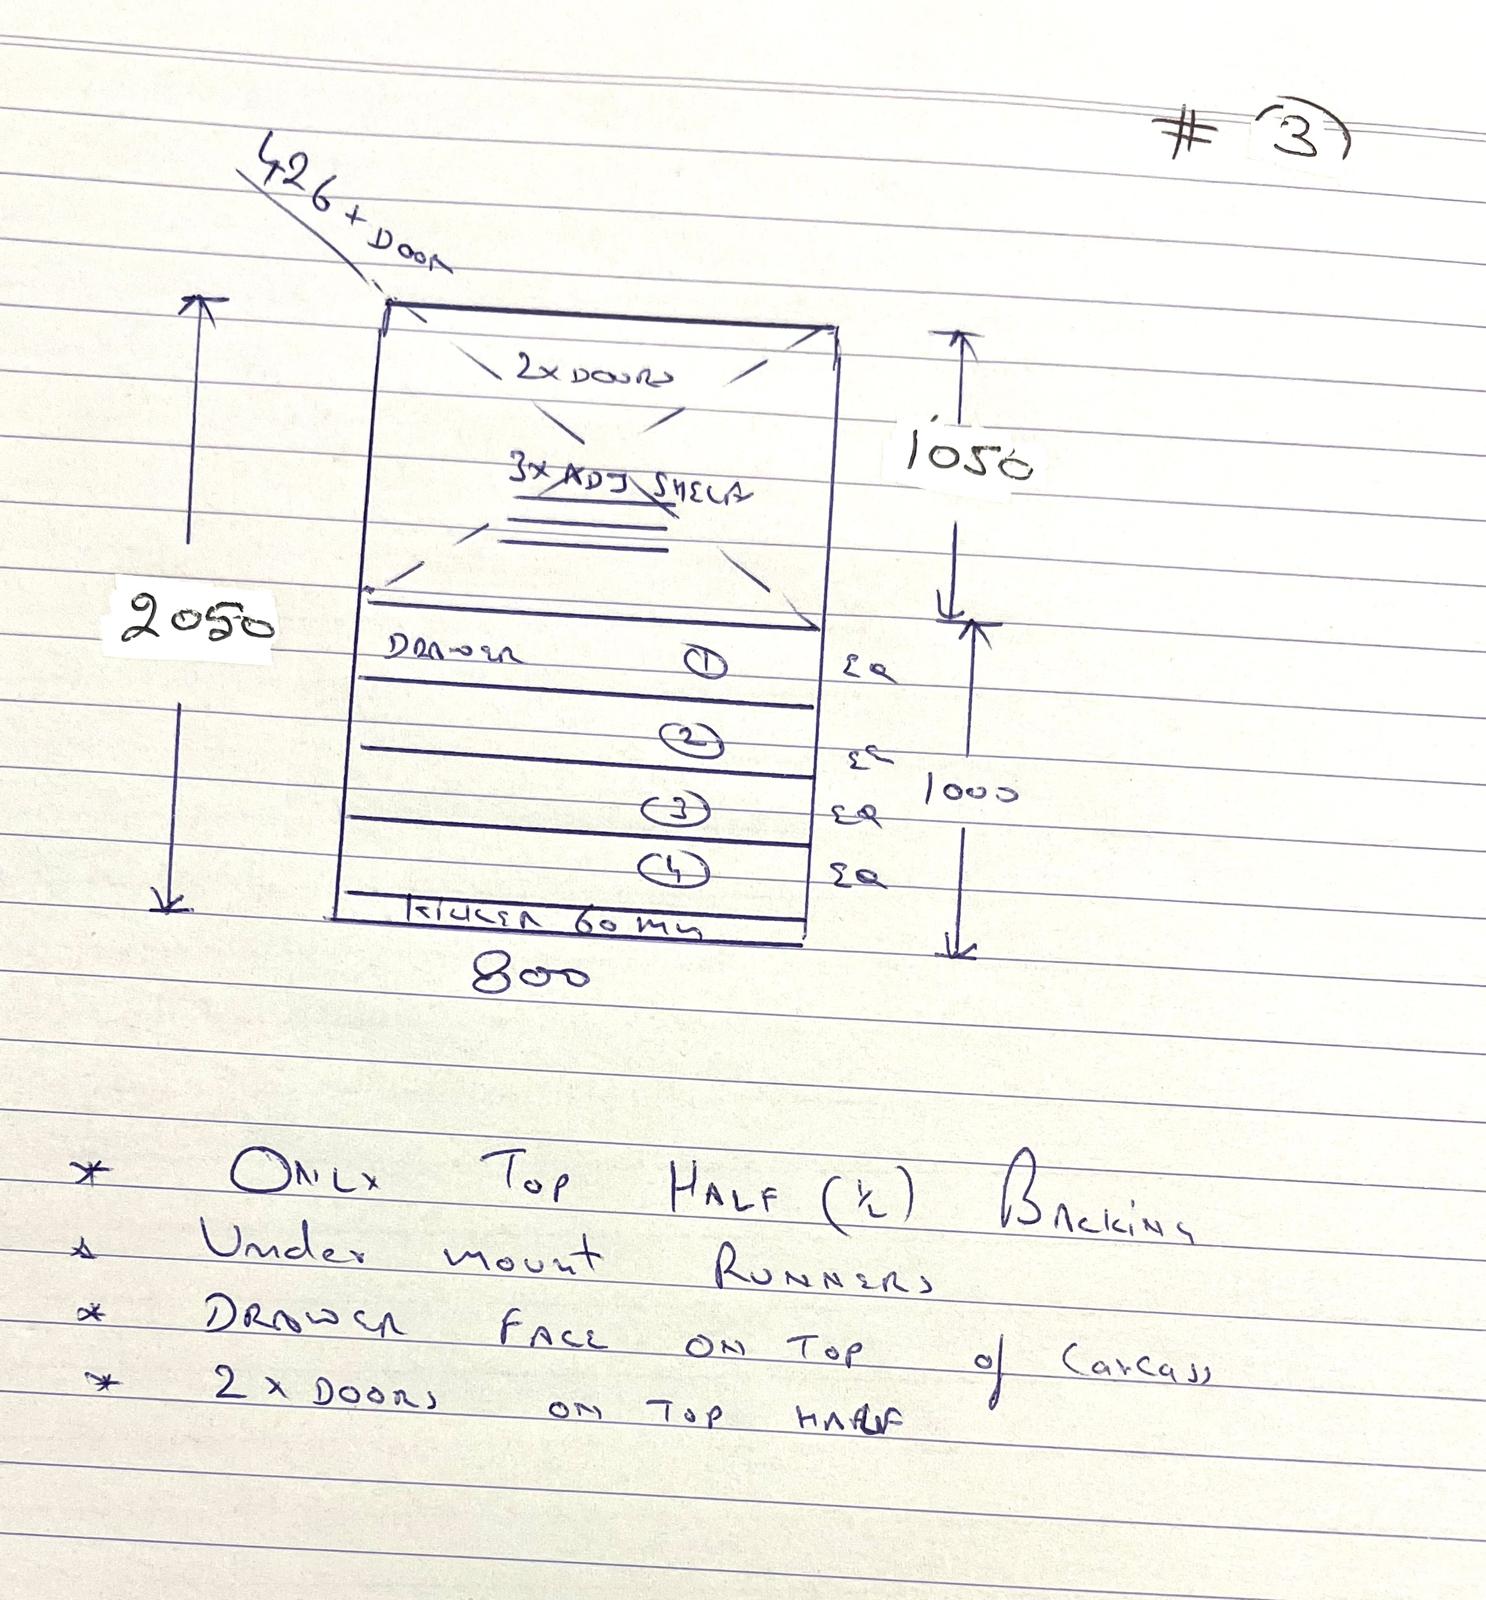 # 3
426 + DOOR
2 x DOORS
3x ADJ SHELF
1050
2050
DRAWER 1 EQ
2 EQ
1000
3 EQ
4 EQ
KICKER 60 mm
800
* ONLY TOP HALF (1/2) BACKING
* Under mount RUNNERS
* DRAWER FACE ON TOP of Carcass
* 2 x DOORS ON TOP HALF